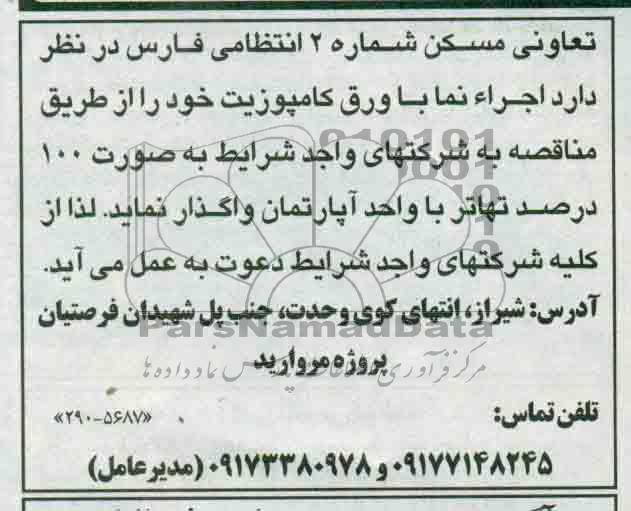 تعاونی مسکن شماره ۲ انتظامی فارس در نظر
دارد اجراء نما با ورق کامپوزیت خود را از طریق
مناقصه به شرکتهای واجد شرایط به صورت ۱۰۰
درصد تهاتر با واحد آپارتمان واگذار نماید. لذا از
کلیه شرکتهای واجد شرایط دعوت به عمل می آید.
آدرس: شیراز، انتهای کوی وحدت، جنب پل شهیدان فرصتیان
ParsNamadData
پروژه مروارید
تلفن تماس:
«۲۹۰-۵۶۸۷»
۰۹۱۷۷۱۴۸۲۴۵ و ۰۹۱۷۳۳۸۰۹۷۸ (مدیرعامل)